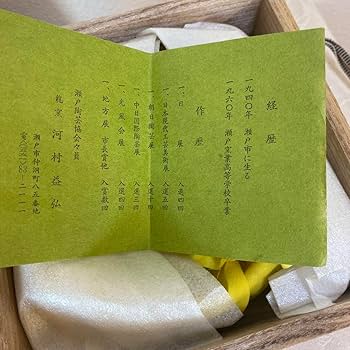 経歴
一九四〇年 瀬戸市に生る
一九六〇年 瀬戸窯業高等学校卒業
作歴
一、日展 入選四回
一、日本現代工芸美術展 入選五回
一、朝日陶芸展 入選十回
一、中日国際陶芸展 入選三回
一、光風会展 入選六回
一、地方展 市長賞他 入賞数回
瀬戸陶芸協会々員
龍窯 河村益弘
瀬戸市仲洞町八五番地